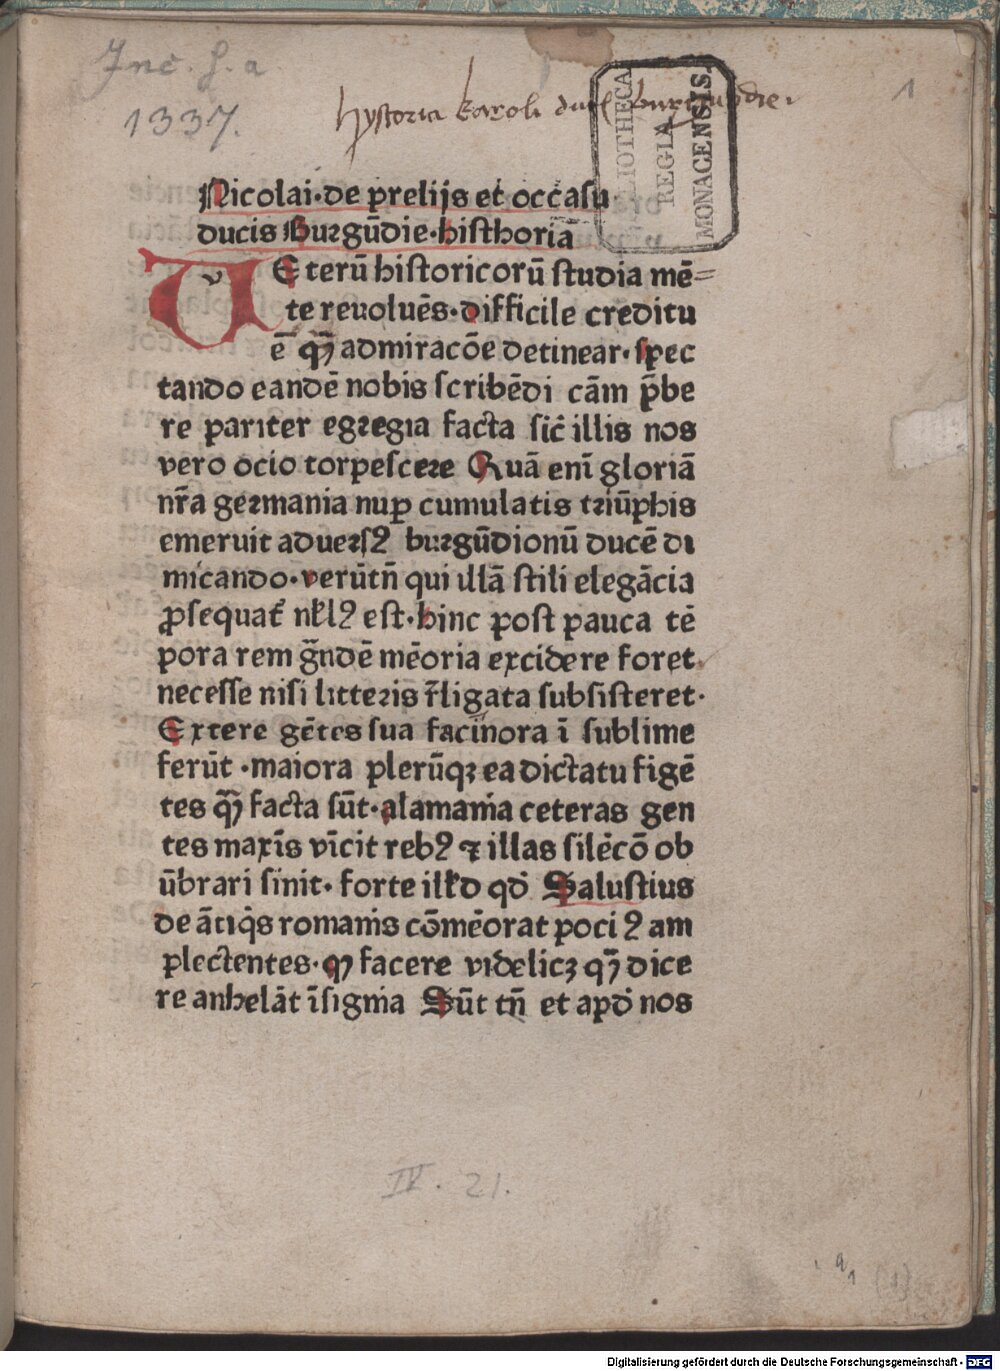 Inc. s. a
1337.
hystoria karoli ducis burgundie
1
BIBLIOTHECA
REGIA
MONACENSIS.
Nicolai·de prelijs et occasu
ducis Burgūdie·histhoria
v Eterū historicorū studia mē=
te reuoluēs·difficile creditu
ē qȝ̄ admiracōe detinear·spec
tando eandē nobis scribēdi cām p̄be
re pariter egregia facta sic̄ illis nos
vero ocio torpescere Quā enī gloriā
nr̄a germania nuꝑ cumulatis triūphis
emeruit aduersꝰ burgūdionū ducē di
micando·verūtn̄ qui illā stili elegācia
ꝓsequat᷑ nłlꝰ est·hinc post pauca tē
pora rem g̃ndē mēoria excidere foret
necesse nisi litteris r̃ligata subsisteret·
Extere gētes sua facinora ī sublime
ferūt ·maiora plerūqȝ ea dictatu figē
tes qȝ̄ facta sūt·alamaīa ceteras gen
tes maxīs vīcit rebꝰ ⁊ illas silēcō ob
ūbrari sinit· forte illłd qd̕ Salustius
de āciq̇s romaīs cōmēorat poci ꝰ am
plectentes·qȝ facere videlicȝ qȝ̄ dice
re anhelāt īsigīa Sūt tn̄ et apd̕ nos
IV. 21.
a1 (1)
Digitalisierung gefördert durch die Deutsche Forschungsgemeinschaft - DFG